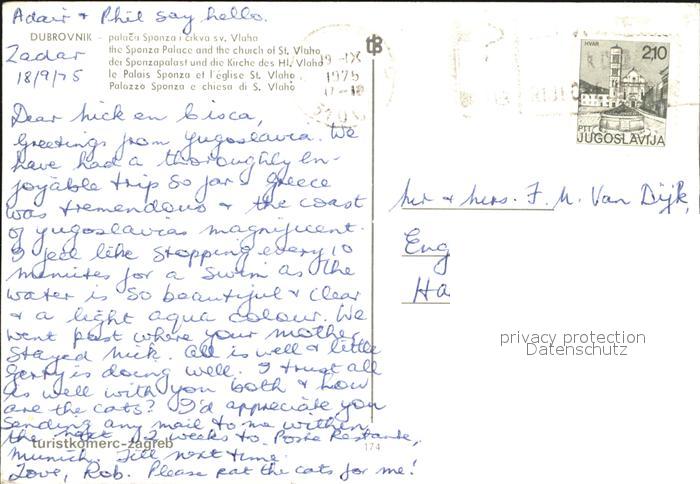 Adair & Phil say hello.
DUBROVNIK – palača Sponza i crkva sv. Vlaho
the Sponza Palace and the church of St. Vlaho
der Sponzapalast und die Kirche des Hl. Vlaho
le Palais Sponza et l'église St. Vlaho
Palazzo Sponza e chiesa di S. Vlaho
Zadar
18/9/75
19-IX
1975
17-18
HVAR
2,10
PTT
JUGOSLAVIJA
Dear Nick en Cisca,
Greetings from Yugoslavia. We
have had a thoroughly en-
joyable trip so far & Greece
was tremendous & the coast
of Yugoslavias magnificent.
I feel like stopping every 10
minutes for a swim as the
water is so beautiful & clear
& a light aqua colour. We
went past where your mother
stayed Nick. All is well & little
Gerry is doing well. I trust all
is well with you both & how
are the cats? I'd appreciate you
sending any mail to me within
the next 1-2 weeks to Poste Restante,
Munich. Till next time.
Love, Rob. Please pat the cats for me!
Mr & Mrs. F. M. Van Dijk,
Eng
Ha
privacy protection
Datenschutz
turistkomerc-zagreb
174